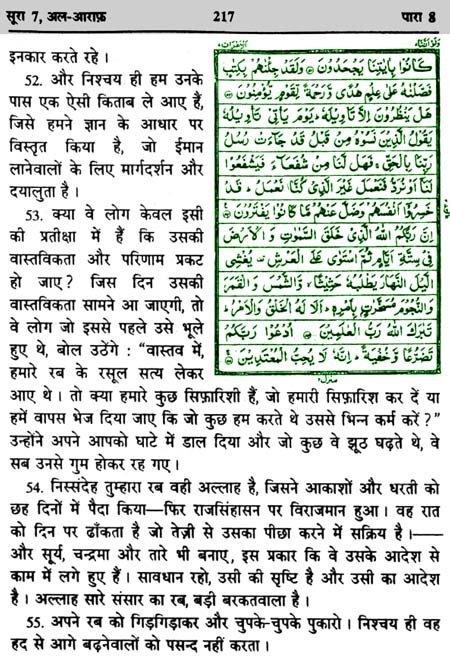 सूरा 7, अल-आराफ़ 217 पारा 8
इनकार करते रहे ।
52. और निश्चय ही हम उनके
पास एक ऐसी किताब ले आए हैं,
जिसे हमने ज्ञान के आधार पर
विस्तृत किया है, जो ईमान
लानेवालों के लिए मार्गदर्शन और
दयालुता है ।
53. क्या वे लोग केवल इसी
की प्रतीक्षा में हैं कि उसकी
वास्तविकता और परिणाम प्रकट
हो जाए? जिस दिन उसकी
वास्तविकता सामने आ जाएगी, तो
वे लोग जो इससे पहले उसे भूले
हुए थे, बोल उठेंगे : "वास्तव में,
हमारे रब के रसूल सत्य लेकर
كَانُوْا بِاٰيٰتِنَا يَجْحَدُوْنَ وَلَقَدْ جِئْنٰهُمْ بِكِتٰبٍ
فَصَّلْنٰهُ عَلٰى عِلْمٍ هُدًى وَّرَحْمَةً لِّقَوْمٍ يُّؤْمِنُوْنَ
هَلْ يَنْظُرُوْنَ اِلَّا تَاْوِيْلَهٗ يَوْمَ يَاْتِيْ تَاْوِيْلُهٗ
يَقُوْلُ الَّذِيْنَ نَسُوْهُ مِنْ قَبْلُ قَدْ جَآءَتْ رُسُلُ
رَبِّنَا بِالْحَقِّ فَهَلْ لَّنَا مِنْ شُفَعَآءَ فَيَشْفَعُوْا
لَنَا اَوْ نُرَدُّ فَنَعْمَلَ غَيْرَ الَّذِيْ كُنَّا نَعْمَلُ قَدْ
خَسِرُوْا اَنْفُسَهُمْ وَضَلَّ عَنْهُمْ مَّا كَانُوْا يَفْتَرُوْنَ
اِنَّ رَبَّكُمُ اللّٰهُ الَّذِيْ خَلَقَ السَّمٰوٰتِ وَالْاَرْضَ
فِيْ سِتَّةِ اَيَّامٍ ثُمَّ اسْتَوٰى عَلَى الْعَرْشِ يُغْشِى
الَّيْلَ النَّهَارَ يَطْلُبُهٗ حَثِيْثًا وَّالشَّمْسَ وَالْقَمَرَ
وَالنُّجُوْمَ مُسَخَّرٰتٍ بِاَمْرِهٖ اَلَا لَهُ الْخَلْقُ وَالْاَمْرُ
تَبٰرَكَ اللّٰهُ رَبُّ الْعٰلَمِيْنَ اُدْعُوْا رَبَّكُمْ
تَضَرُّعًا وَّخُفْيَةً اِنَّهٗ لَا يُحِبُّ الْمُعْتَدِيْنَ
आए थे । तो क्या हमारे कुछ सिफ़ारिशी हैं, जो हमारी सिफ़ारिश कर दें या
हमें वापस भेज दिया जाए कि जो कुछ हम करते थे उससे भिन्न कर्म करें ?"
उन्होंने अपने आपको घाटे में डाल दिया और जो कुछ वे झूठ घढ़ते थे, वे
सब उनसे गुम होकर रह गए ।
54. निस्संदेह तुम्हारा रब वही अल्लाह है, जिसने आकाशों और धरती को
छह दिनों में पैदा किया—फिर राजसिंहासन पर विराजमान हुआ । वह रात
को दिन पर ढाँकता है जो तेज़ी से उसका पीछा करने में सक्रिय है ।—
और सूर्य, चन्द्रमा और तारे भी बनाए, इस प्रकार कि वे उसके आदेश से
काम में लगे हुए हैं । सावधान रहो, उसी की सृष्टि है और उसी का आदेश
है । अल्लाह सारे संसार का रब, बड़ी बरकतवाला है ।
55. अपने रब को गिड़गिड़ाकर और चुपके-चुपके पुकारो । निश्चय ही वह
हद से आगे बढ़नेवालों को पसन्द नहीं करता ।